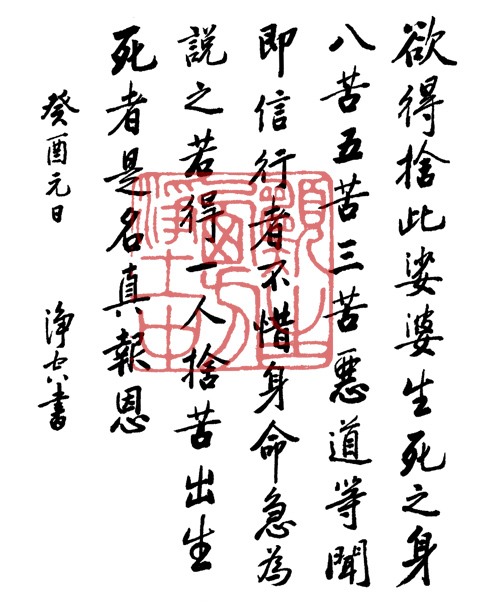 欲得捨此娑婆生死之身
八苦五苦三苦惡道等聞
即信行者不惜身命急為
說之若得一人捨苦出生
死者是名真報恩
癸酉元日 淨空書
願生西方淨土中